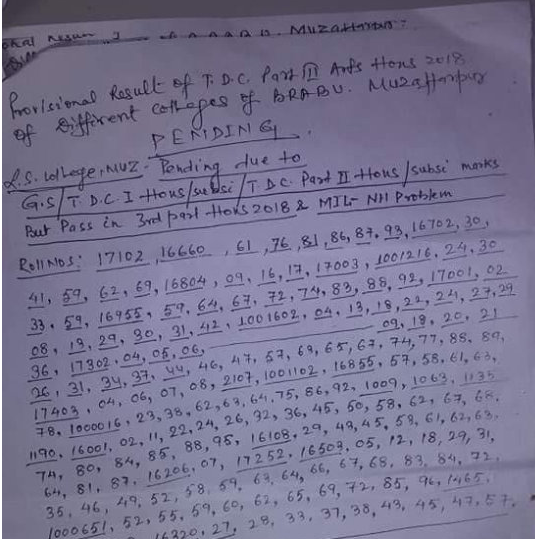 Muzaffarpur
Provisional Result of T.D.C. Part III Arts Hons 2018
of Different colleges of BRABU. Muzaffarpur
PENDING.
L.S. College, MUZ - Pending due to
G.S/T.D.C. I - Hons/subsi/T.D.C. Part II Hons/subsi marks
But Pass in 3rd part Hons 2018 & MIL- NH Problem
Roll Nos: 17102, 16660, 61, 76, 81, 86, 87, 93, 16702, 30,
41, 59, 62, 69, 16804, 09, 16, 17, 17003, 1001216, 24, 30
33, 59, 16955, 59, 64, 67, 72, 74, 83, 88, 92, 17001, 02
08, 13, 29, 30, 31, 42, 1001602, 04, 13, 18, 22, 24, 27, 29
36, 17302, 04, 05, 06, 09, 18, 20, 21
26, 31, 34, 37, 44, 46, 47, 57, 63, 65, 67, 74, 77, 88, 89,
17403, 04, 06, 07, 08, 2107, 1001102, 16855, 57, 58, 61, 63,
78, 1000016, 23, 38, 62, 63, 64, 75, 86, 92, 1009, 1063, 1135
1190, 16001, 02, 11, 22, 24, 26, 32, 36, 45, 50, 58, 62, 67, 68,
74, 80, 84, 85, 88, 95, 16108, 29, 43, 45, 53, 61, 62, 63,
64, 81, 87, 16206, 07, 17252, 16503, 05, 12, 18, 29, 31,
35, 46, 49, 52, 58, 59, 63, 64, 66, 67, 68, 83, 84, 72,
1000651, 52, 55, 59, 60, 62, 65, 69, 72, 85, 96, 1465,
16320, 27, 28, 33, 37, 38, 43, 45, 47, 57,